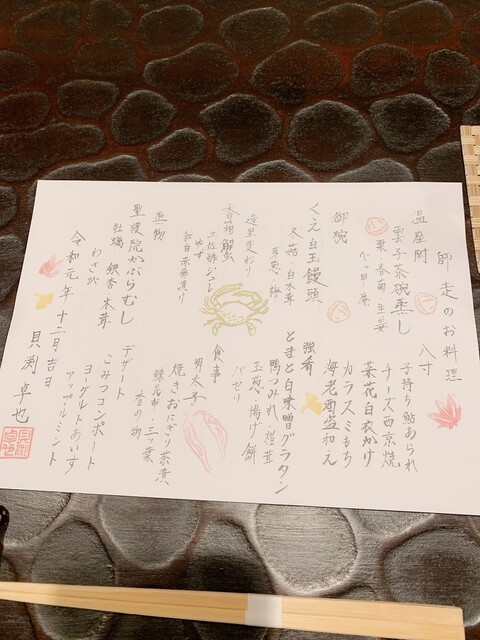 師走のお料理
温座附
雲子茶碗蒸し
栗 春菊 生姜
べっ甲庵
御椀
くえ白玉饅頭
冬菇 白木茸
造里変わり
大黒 蟹
土佐酢ジュレ
ゆず
紅白
蒸物
聖護院かぶらむし
牡蠣 銀杏 木茸
わさび
八寸
子持ち鮎あられ
チーズ西京焼
菜花白衣かけ
カラスミもち
海老酒盗和え
強肴
とまと白味噌グラタン
鴨つみれ 椎茸
玉葱 揚げ餅
パセリ
食事
明太子
焼きおにぎり茶漬
塩昆布 三つ葉
香の物
デザート
こみつコンポート
ヨーグルトあいす
アップルミント
令和元年十二月吉日
貝渕卓也